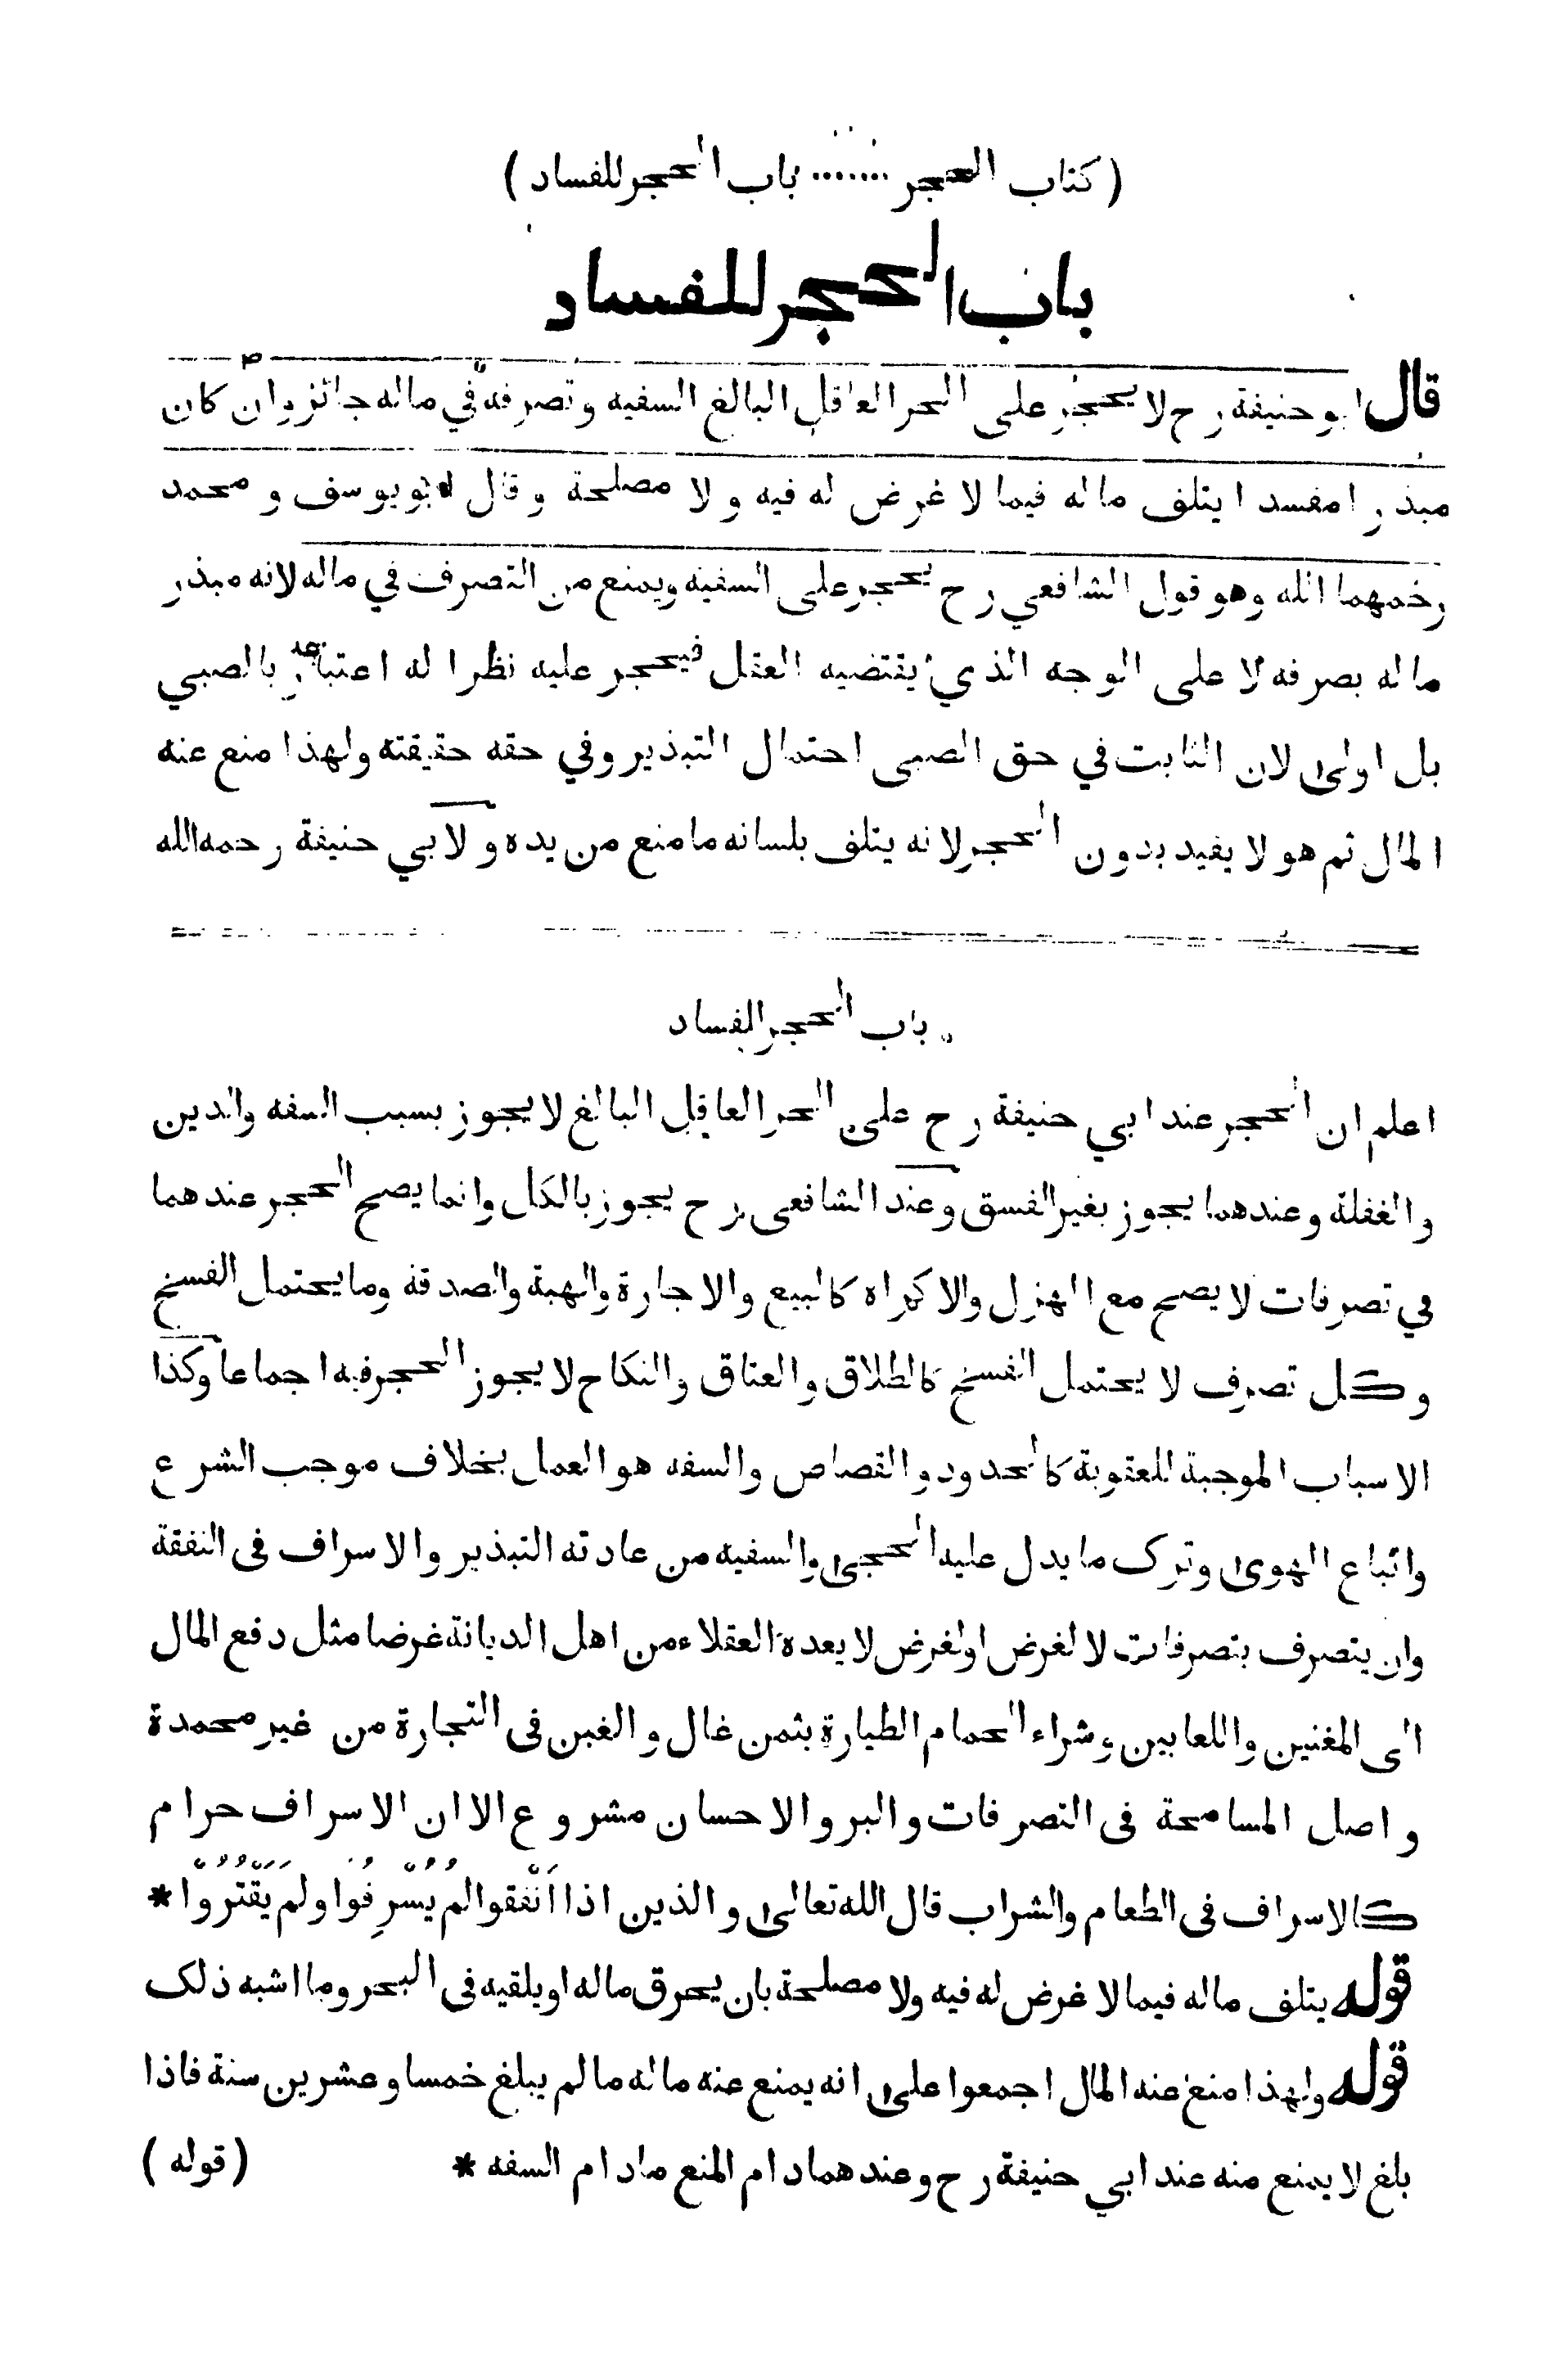 ( كتاب الحجر ...... باب الحجر للفساد )
باب الحجر للفساد
قال ابو حنيفة رح لا يحجر على الحر العاقل البالغ السفيه وتصرفه في ماله جائز وان كان
مبذرا مفسدا يتلف ماله فيما لا غرض له فيه ولا مصلحة وقال ابويوسف ومحمد
رحمهما الله وهو قول الشافعي رح يحجر على السفيه ويمنع من التصرف في ماله لانه مبذر
ماله بصرفه لا على الوجه الذي يقتضيه العقل فيحجر عليه نظرا له اعتبارا بالصبي
بل اولى لان الثابت في حق الصبى احتمال التبذير وفي حقه حقيقته ولهذا منع عنه
المال ثم هو لا يفيد بدون الحجر لانه يتلف بلسانه ما منع من يده ولابي حنيفة رحمه الله
باب الحجر للفساد
اعلم ان الحجر عند ابي حنيفة رح على الحر العاقل البالغ لا يجوز بسبب السفه والدين
والغفلة وعندهما يجوز بغير الفسق وعند الشافعى رح يجوز بالكل وانما يصح الحجر عندهما
في تصرفات لا يصح مع الهزل والاكراه كالبيع والاجارة والهبة والصدقة وما يحتمل الفسخ
وكل تصرف لا يحتمل الفسخ كالطلاق والعتاق والنكاح لا يجوز الحجر فيه اجماعا وكذا
الاسباب الموجبة للعقوبة كالحدود والقصاص والسفه هو العمل بخلاف موجب الشرع
واتباع الهوى وترك ما يدل عليه الحجى والسفيه من عادته التبذير والاسراف فى النفقة
وان يتصرف بتصرفات لا لغرض او لغرض لا يعده العقلاء من اهل الديانة غرضا مثل دفع المال
الى المغنين واللعابين وشراء الحمام الطيارة بثمن غال والغبن فى التجارة من غير محمدة
واصل المسامحة فى التصرفات والبر والاحسان مشروع الا ان الاسراف حرام
كالاسراف فى الطعام والشراب قال الله تعالى والذين اذا اَنْفقوا لمْ يُسْرِفُوا ولَم يَقْتُرُوْا *
قوله يتلف ماله فيما لا غرض له فيه ولا مصلحة بان يحرق ماله او يلقيه فى البحر وما اشبه ذلك
قوله ولهذا منع عنه المال اجمعوا على انه يمنع عنه ماله ما لم يبلغ خمسا وعشرين سنة فاذا
بلغ لا يمنع منه عند ابي حنيفة رح وعندهما دام المنع مادام السفه * ( قوله )